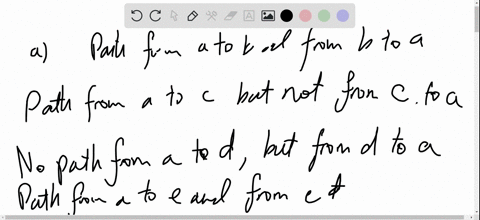 a) Path from a to b and from b to a
Path from a to c but not from c to a
No path from a to d, but from d to a
Path from a to e and from e